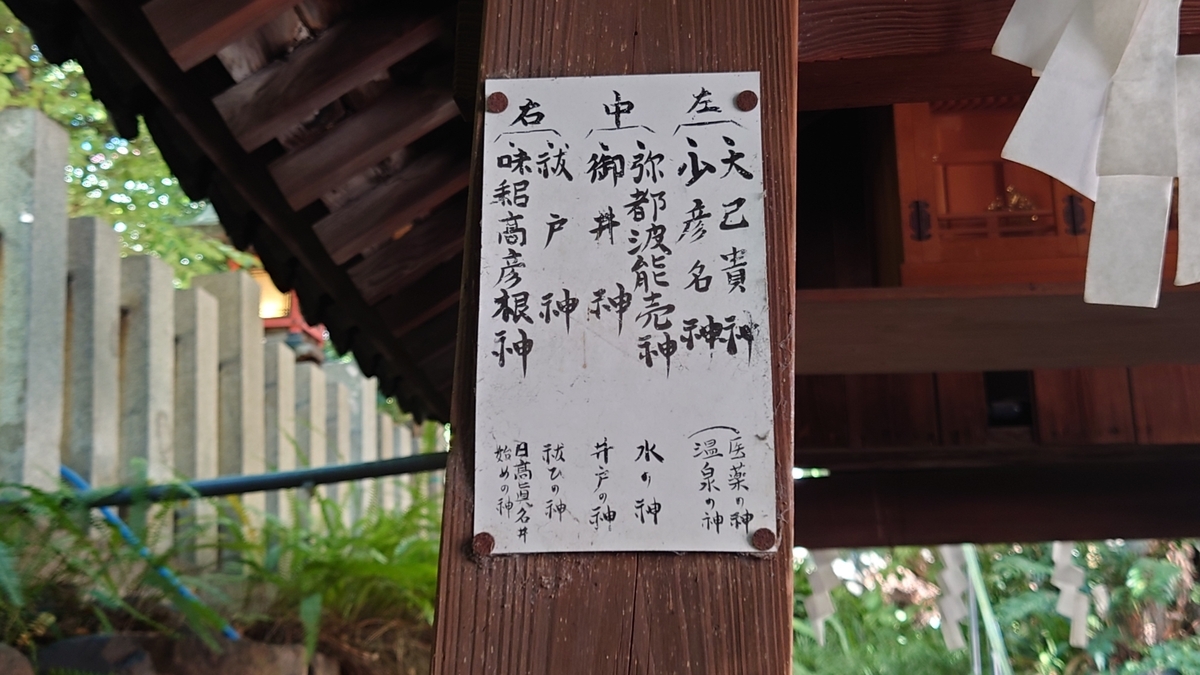 左
大己貴神
少彦名神
医薬の神
温泉の神
中
弥都波能売神
御井神
水の神
井戸の神
右
祓戸神
味耜高彦根神
祓ひの神
日高眞名井
始めの神